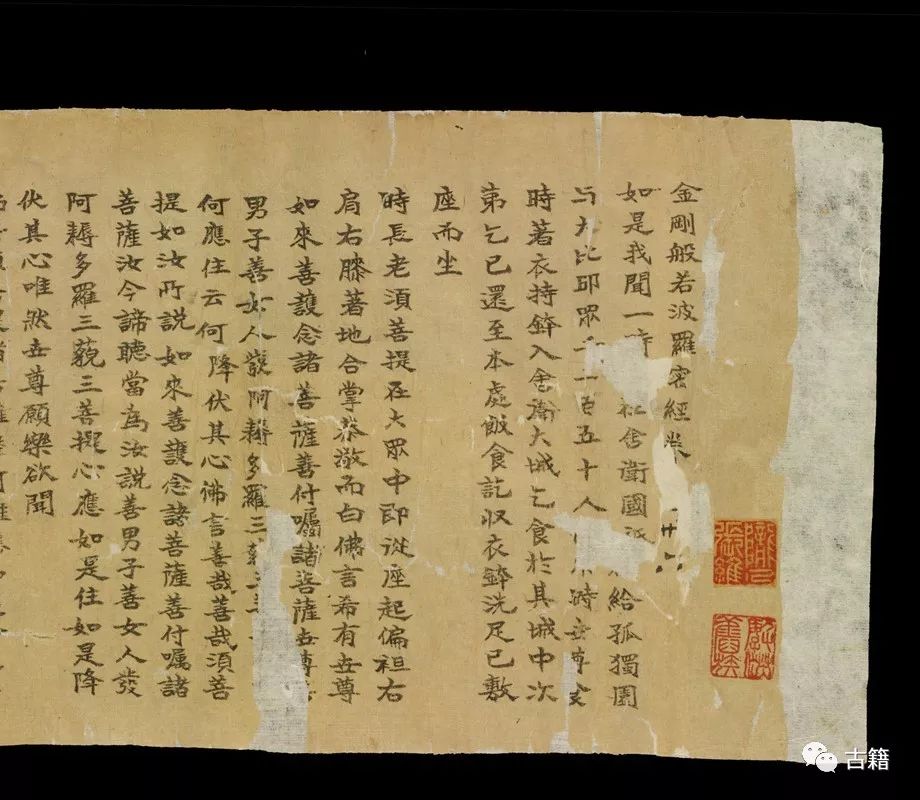 金剛般若波羅密經
卅六
如是我聞一時 舍衛國 給孤獨園
与大比邱眾千二百五十人 時世尊食
時著衣持鉢入舍衛大城乞食於其城中次
第乞已還至本處飯食訖收衣鉢洗足已敷
座而坐
時長老須菩提在大眾中即從座起偏袒右
肩右膝著地合掌恭敬而白佛言希有世尊
如來善護念諸菩薩善付囑諸菩薩世尊善
男子善女人發阿耨多羅三藐三
何應住云何降伏其心佛言善哉善哉須菩
提如汝所說如來善護念諸菩薩善付囑諸
菩薩汝今諦聽當為汝說善男子善女人發
阿耨多羅三藐三菩提心應如是住如是降
伏其心唯然世尊願樂欲聞
隴右張維
古籍